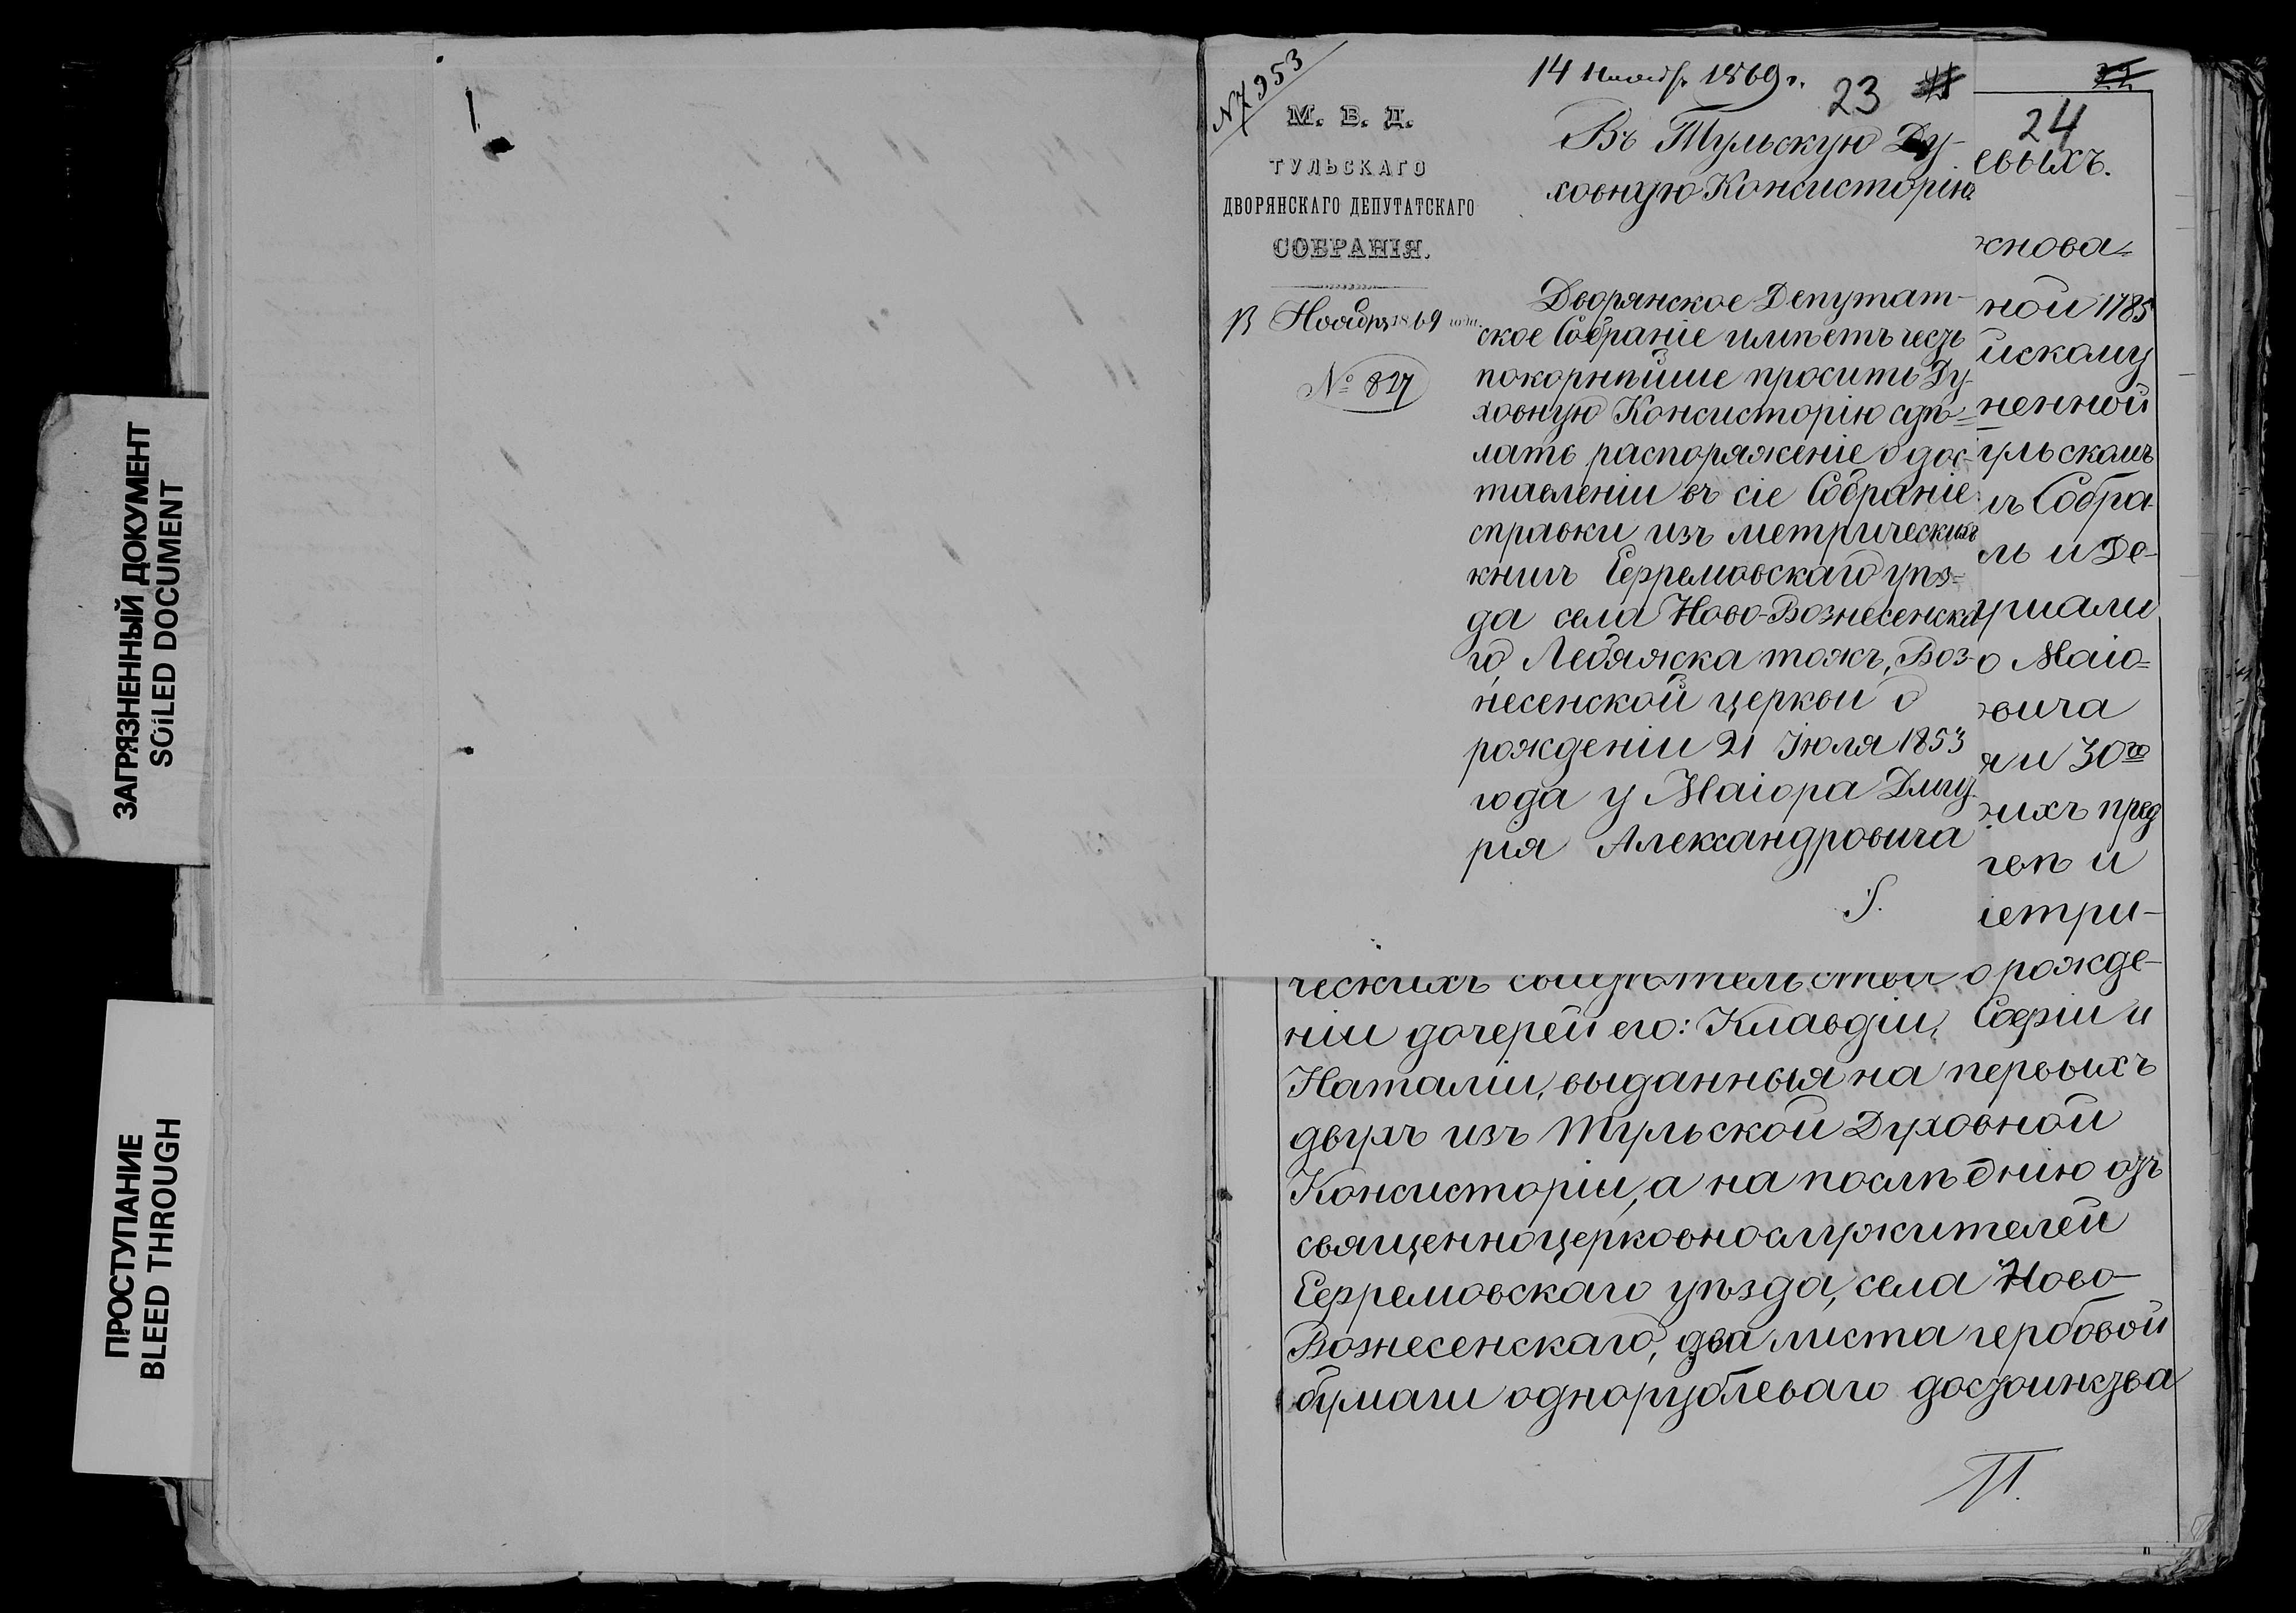 ЗАГРЯЗНЕННЫЙ ДОКУМЕНТ
SOILED DOCUMENT
ПРОСТУПАНИЕ
BLEED THROUGH
№ 7953
14 Ноябр. 1869 г.
23
М. В. Д.
ТУЛЬСКАГО
ДВОРЯНСКАГО ДЕПУТАТСКАГО
СОБРАНІЯ.
13 Ноября 1869 года.
№ 827
Въ Тульскую Ду-
ховную Консисторію
Дворянское Депутат-
ское Собраніе имѣетъ честь
покорнѣйше просить Ду-
ховную Консисторію сдѣ=
лать распоряженіе о дос-
тавленіи въ сіе Собраніе
справки изъ метрическихъ
книгъ Ефремовскаго уѣз=
да села Ново-Вознесенска
го, Лебяжка тожъ, Воз-
несенской церкви о
рожденіи 21 Іюля 1853
года у Маіора Дмит
рія Александровича
24
евыхъ.
жнова=
ной 1785
йскому
ненной
ульскомъ
мъ Собра-
ль и Де-
уриали
о Маіо=
овича
я и 30го
нихъ пред
тев и
метри-
ческихъ свидѣтельствъ о рожде-
ніи дочерей его: Клавдіи, Софіи и
Наталіи, выданныя на первыхъ
двухъ изъ Тульской Духовной
Консисторіи, а на послѣднію отъ
священноцерковнослужителей
Ефремовскаго уѣзда, села Ново-
Вознесенскаго, два листа гербовой
бумаги однорублеваго достоинства
П.